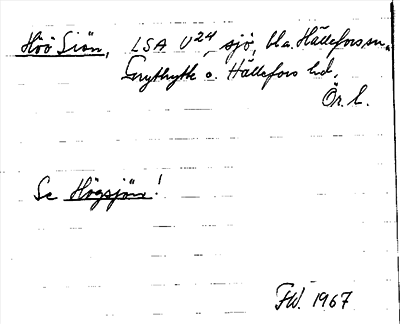 Höö Siön, LSA U24 sjö, bl.a. Hällefors sn.
Grythytte o. Hällefors hd,
Ör. l.
Se Högsjön!
FW. 1967